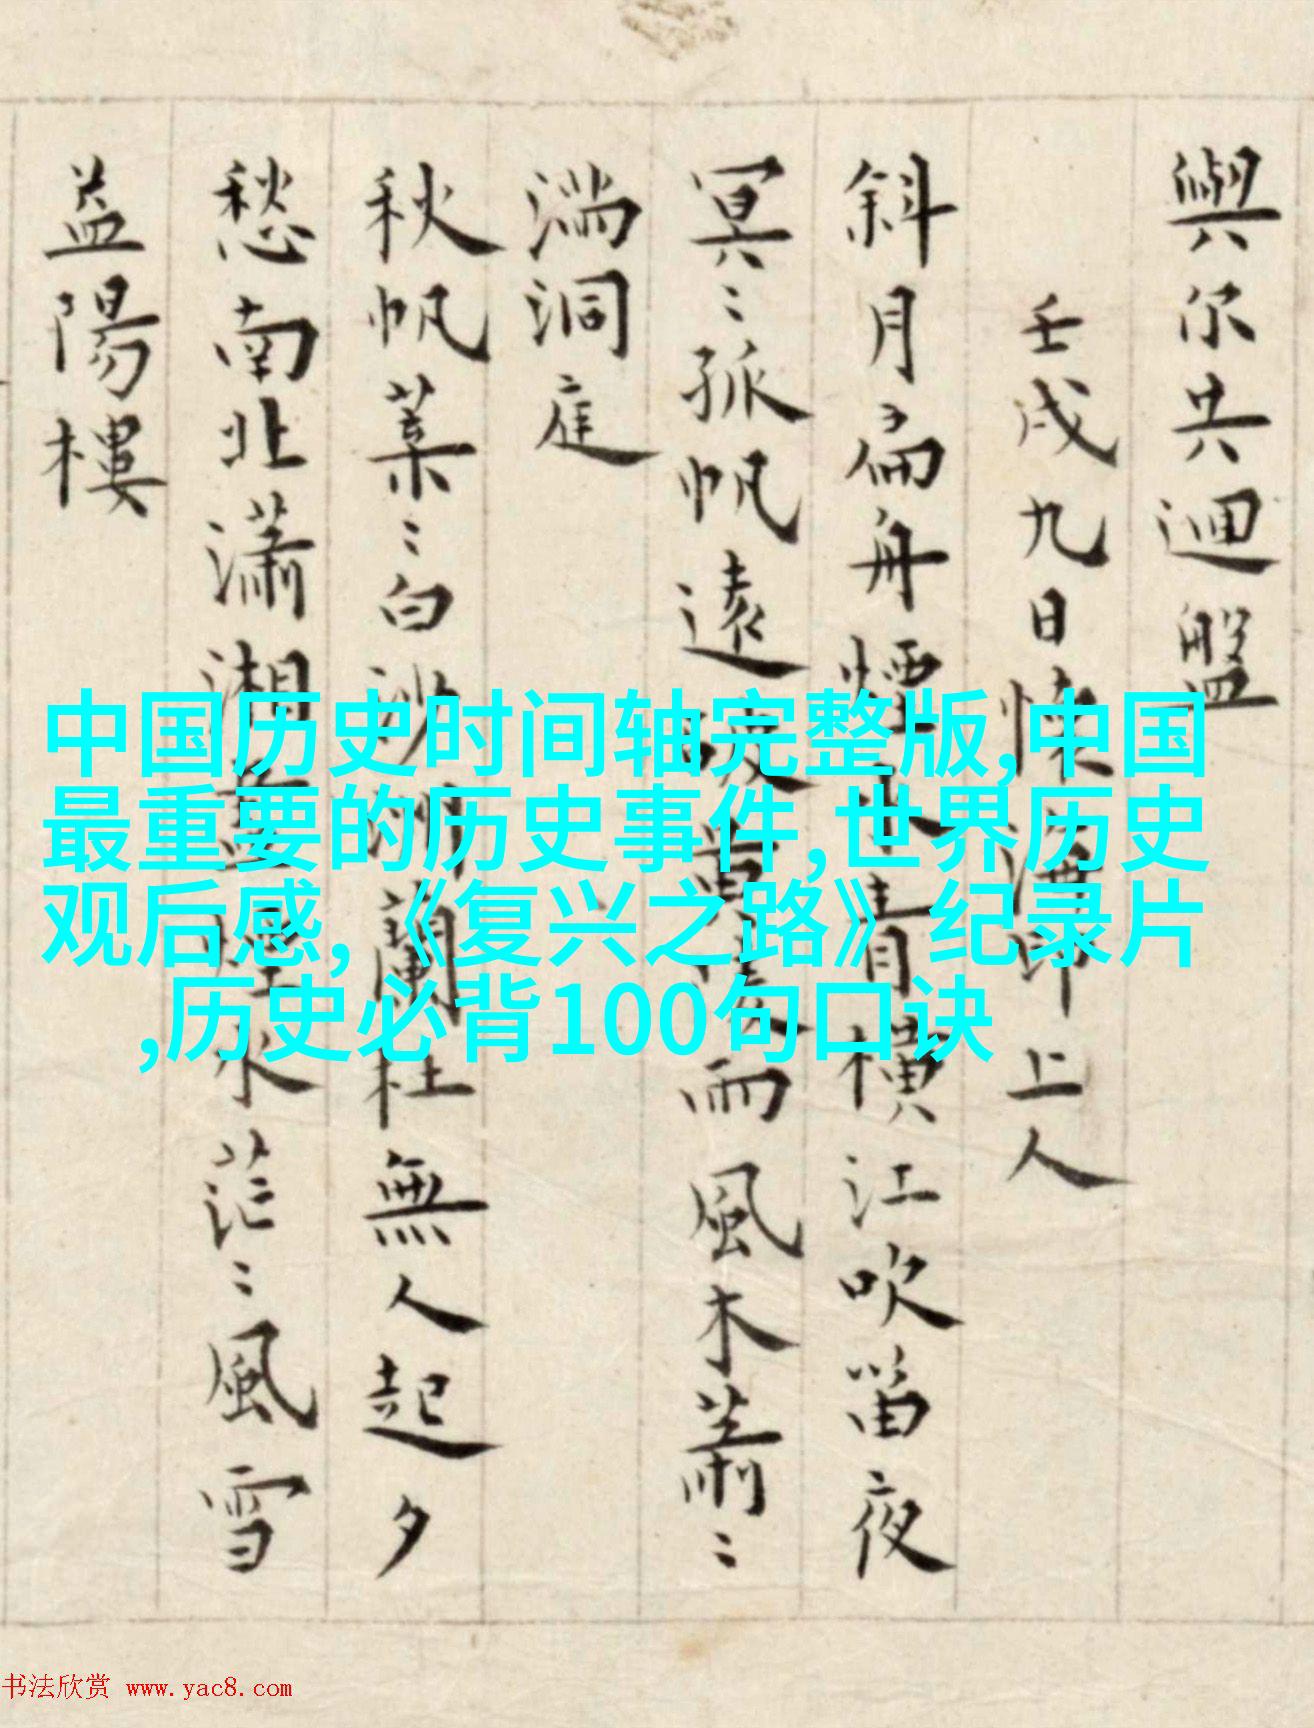 與尔共迴盤
壬戌九日懷上人
斜月扁舟煙水青橫江吹笛夜
冥〻孤帆遠破黄陵雨風木蕭〻
滿洞庭
秋帆葉〻白沙洲蘭杜無人起夕
愁南北瀟湘煙水茫〻風雪
益陽樓
中国历史时间轴完整版,中国
最重要的历史事件,世界历史
观后感,《复兴之路》纪录片
,历史必背100句口诀
书法欣赏 www.yac8.com